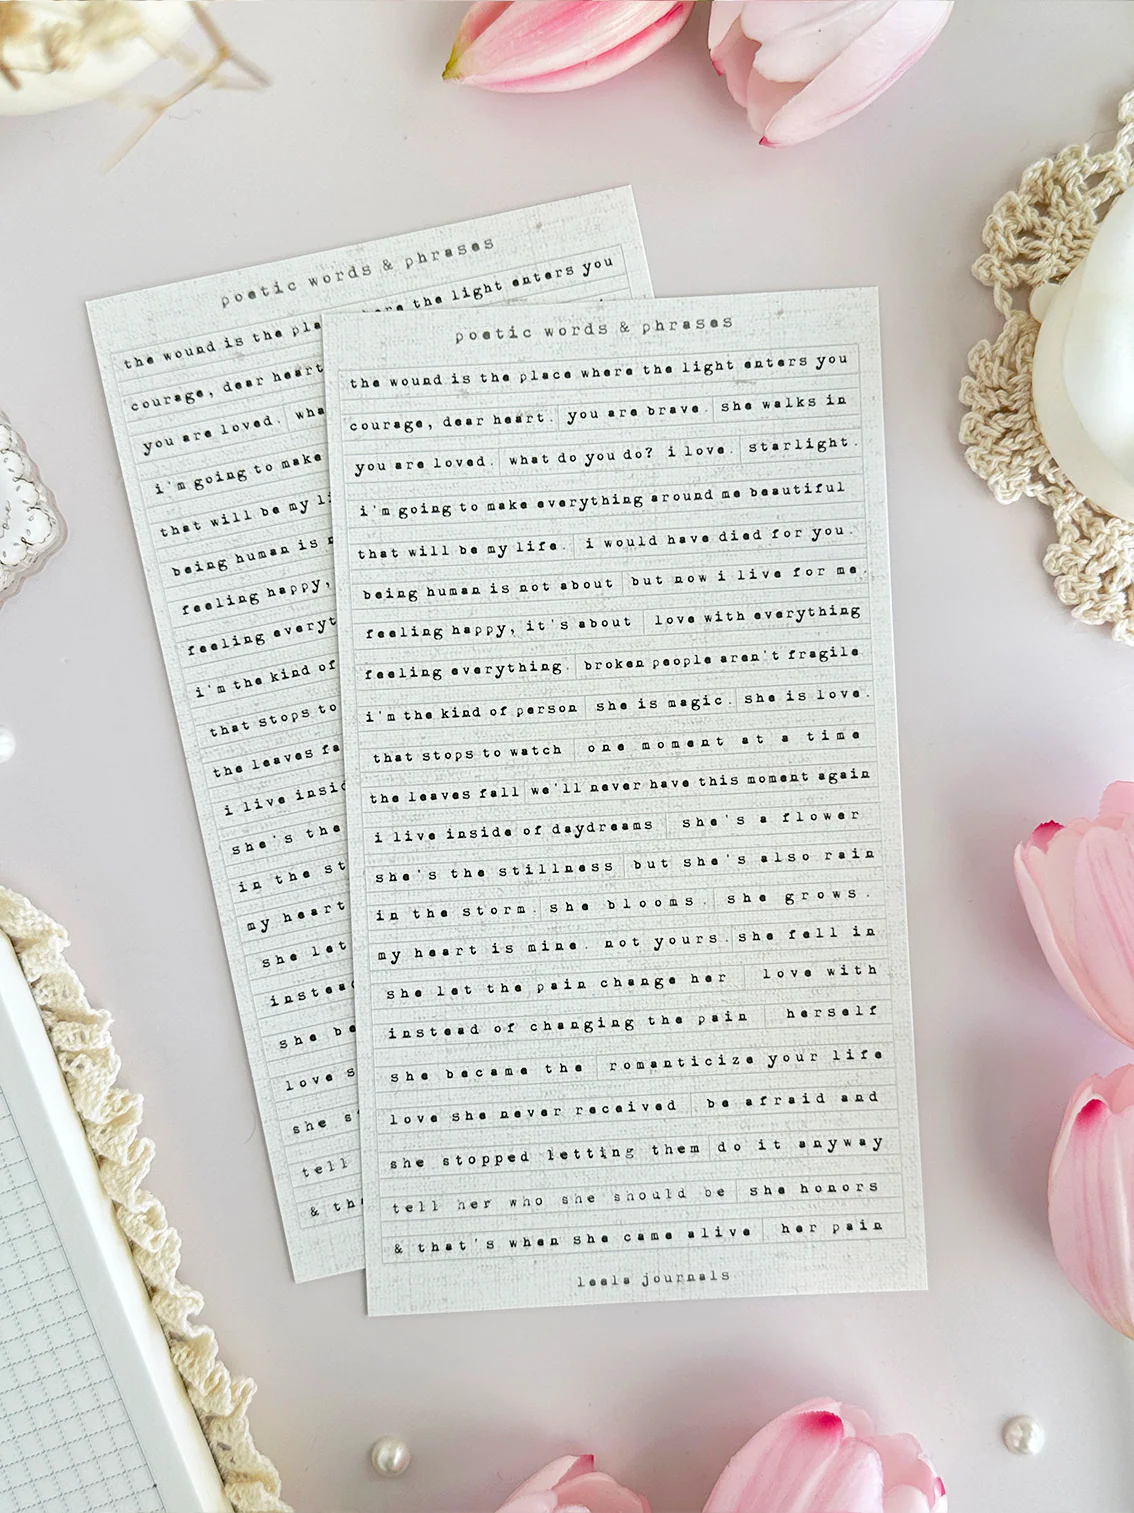 poetic words & phrases
the wound is the pla ere the light enters you
courage, dear heart
you are loved. wha
i'm going to make
that will be my li
being human is n
feeling happy,
feeling everyt
i'm the kind of
that stops to
the leaves fa
i live insid
she's the
in the st
my heart
she let
instead
she be
love s
she s
tell
& th
poetic words & phrases
the wound is the place where the light enters you
courage, dear heart. you are brave. she walks in
you are loved. what do you do? i love. starlight.
i'm going to make everything around me beautiful
that will be my life. i would have died for you.
being human is not about but now i live for me.
feeling happy, it's about love with everything
feeling everything. broken people aren't fragile
i'm the kind of person she is magic. she is love.
that stops to watch one moment at a time
the leaves fall we'll never have this moment again
i live inside of daydreams she's a flower
she's the stillness but she's also rain
in the storm. she blooms. she grows.
my heart is mine. not yours. she fell in
she let the pain change her love with
instead of changing the pain herself
she became the romanticize your life
love she never received be afraid and
she stopped letting them do it anyway
tell her who she should be she honors
& that's when she came alive her pain
leela journals